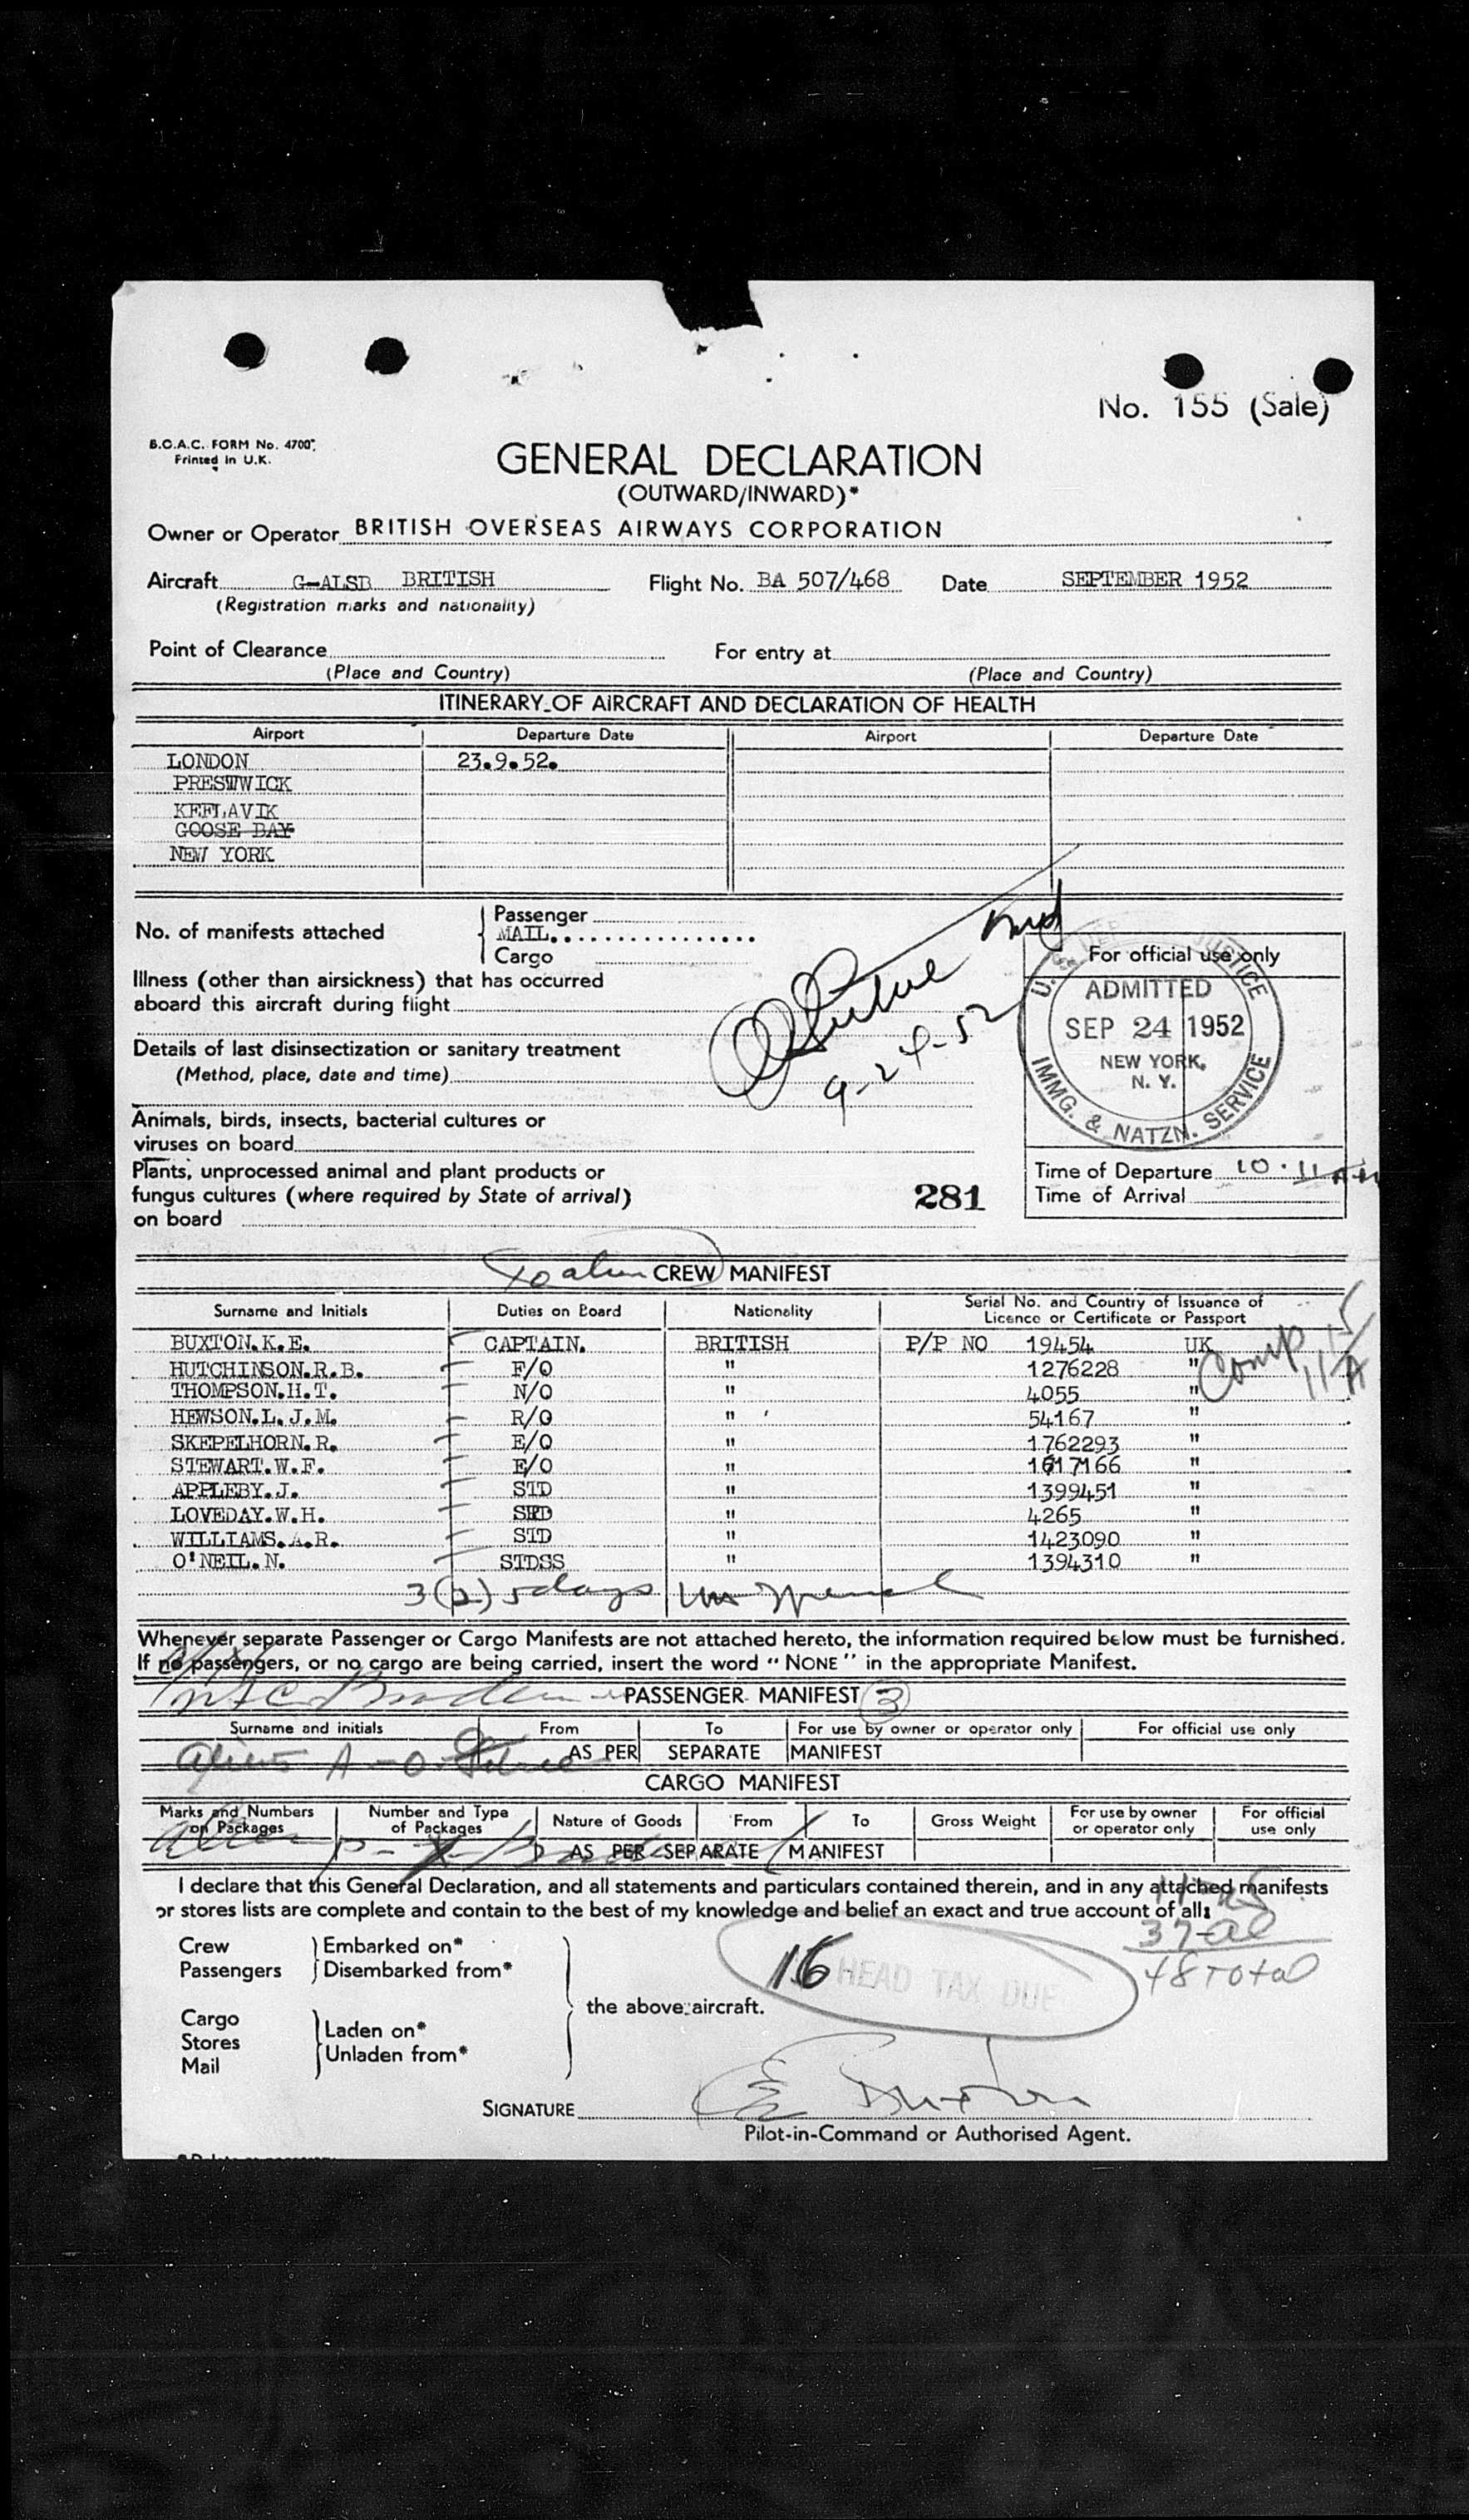 No. 155 (Sale)
B.O.A.C. FORM No. 4700
Printed in U.K.
GENERAL DECLARATION
(OUTWARD/INWARD)*
Owner or Operator BRITISH OVERSEAS AIRWAYS CORPORATION
Aircraft G-ALSD BRITISH Flight No. BA 507/468 Date SEPTEMBER 1952
(Registration marks and nationality)
Point of Clearance For entry at
(Place and Country) (Place and Country)
ITINERARY OF AIRCRAFT AND DECLARATION OF HEALTH
Airport Departure Date Airport Departure Date
LONDON 23.9.52.
PRESTWICK
KEFLAVIK
GOOSE BAY
NEW YORK
No. of manifests attached
Passenger
MAIL
Cargo
Illness (other than airsickness) that has occurred
aboard this aircraft during flight
Details of last disinsectization or sanitary treatment
(Method, place, date and time)
9-24-52
Animals, birds, insects, bacterial cultures or
viruses on board
Plants, unprocessed animal and plant products or
fungus cultures (where required by State of arrival)
on board
281
For official use only
U.S. DEPT. JUSTICE
ADMITTED
SEP 24 1952
NEW YORK,
N. Y.
IMMG. & NATZN. SERVICE
Time of Departure 10.11 AM
Time of Arrival
CREW MANIFEST
Surname and Initials Duties on Board Nationality Serial No. and Country of Issuance of
Licence or Certificate or Passport
BUXTON.K.E. CAPTAIN. BRITISH P/P NO 19454 UK
HUTCHINSON.R.B. F/O " 1276228 "
THOMPSON.H.T. N/O " 4055 "
HEWSON.L.J.M. R/O " 54167 "
SKEPELHORN.R. E/O " 1762293 "
STEWART.W.F. E/O " 1617166 "
APPLEBY.J. STD " 1399451 "
LOVEDAY.W.H. STD " 4265 "
WILLIAMS.A.R. STD " 1423090 "
O'NEIL.N. STDSS " 1394310 "
Comp
3(2) 5 days
Whenever separate Passenger or Cargo Manifests are not attached hereto, the information required below must be furnished.
If no passengers, or no cargo are being carried, insert the word "NONE" in the appropriate Manifest.
PASSENGER MANIFEST 3
Surname and initials From To For use by owner or operator only For official use only
AS PER SEPARATE MANIFEST
CARGO MANIFEST
Marks and Numbers on Packages Number and Type of Packages Nature of Goods From To Gross Weight For use by owner or operator only For official use only
AS PER SEPARATE MANIFEST
I declare that this General Declaration, and all statements and particulars contained therein, and in any attached manifests
or stores lists are complete and contain to the best of my knowledge and belief an exact and true account of all:
37-al
48 Total
Crew
Passengers
Embarked on*
Disembarked from*
Cargo
Stores
Mail
Laden on*
Unladen from*
the above aircraft.
16 HEAD TAX DUE
SIGNATURE
Pilot-in-Command or Authorised Agent.